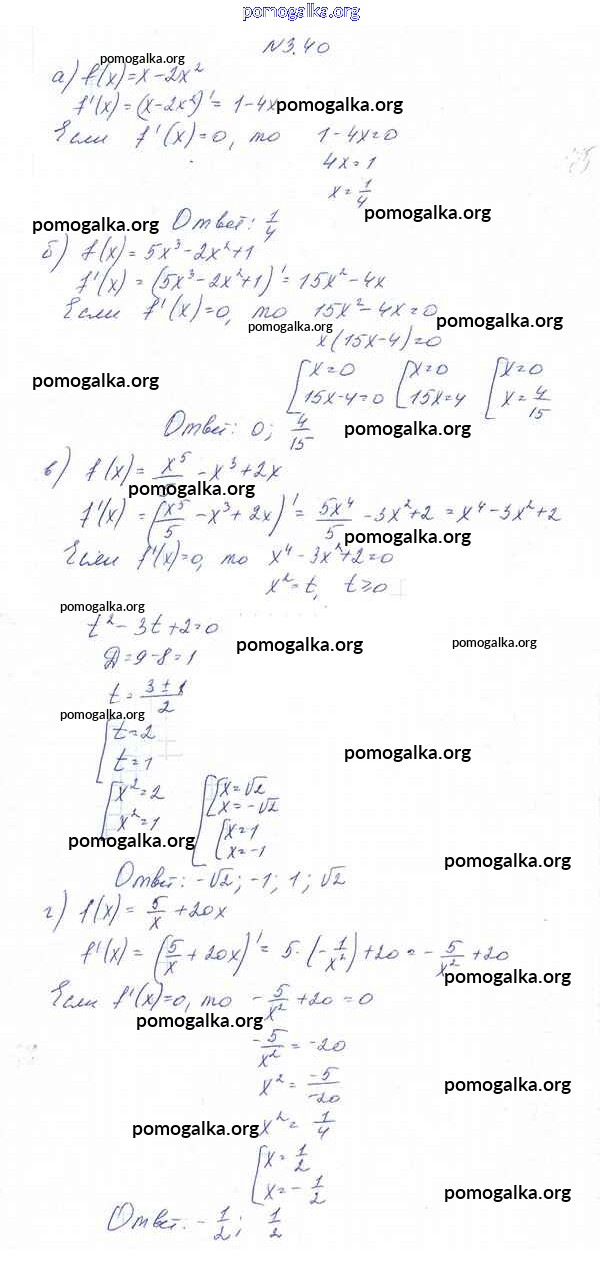 pomogalka.org
N3.40
pomogalka.org
а) f(x)=x-2x²
f'(x)=(x-2x²)'=1-4x pomogalka.org
Если f'(x)=0, то 1-4x=0
4x=1
x=1/4
pomogalka.org
pomogalka.org Ответ: 1/4
б) f(x)=5x³-2x²+1
f'(x)=(5x³-2x²+1)'=15x²-4x
Если f'(x)=0, то 15x²-4x=0
pomogalka.org pomogalka.org
x(15x-4)=0
[x=0 [x=0 [x=0
pomogalka.org
15x-4=0 15x=4 x=4/15
Ответ: 0; 4/15 pomogalka.org
в) f(x)=x⁵/5-x³+2x
pomogalka.org
f'(x)=(x⁵/5-x³+2x)'=5x⁴/5-3x²+2=x⁴-3x²+2
pomogalka.org
Если f'(x)=0, то x⁴-3x²+2=0
x²=t, t≥0
pomogalka.org
t²-3t+2=0
pomogalka.org pomogalka.org
Д=9-8=1
t=(3±1)/2
pomogalka.org
[t=2
t=1
pomogalka.org
[x²=2 [[x=√2
x=-√2
x²=1 [x=1
pomogalka.org x=-1
pomogalka.org
Ответ: -√2; -1; 1; √2
г) f(x)=5/x+20x
f'(x)=(5/x+20x)'=5·(-1/x²)+20=-5/x²+20
pomogalka.org
Если f'(x)=0, то -5/x²+20=0
pomogalka.org
-5/x²=-20
x²=-5/-20
pomogalka.org
pomogalka.org x²=1/4
[x=1/2
x=-1/2
pomogalka.org
Ответ: -1/2; 1/2